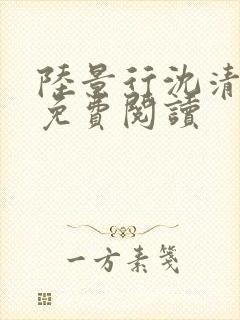 陸景行沈清
免費閱讀
一方素箋